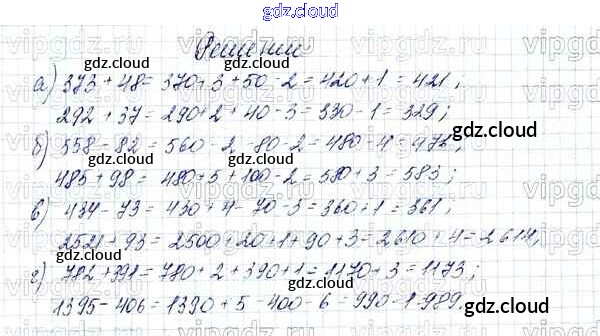 gdz.cloud
Решение
а) 373 + 48 = 370 + 3 + 50 - 2 = 420 + 1 = 421;
292 + 37 = 290 + 2 + 40 - 3 = 330 - 1 = 329;
б) 558 - 82 = 560 - 2 - 80 - 2 = 480 - 4 = 476;
485 + 98 = 480 + 5 + 100 - 2 = 580 + 3 = 583;
в) 434 - 73 = 430 + 4 - 70 - 3 = 360 + 1 = 361;
2521 + 93 = 2500 + 20 + 1 + 90 + 3 = 2610 + 4 = 2614,
г) 782 + 391 = 780 + 2 + 390 + 1 = 1170 + 3 = 1173;
1395 - 406 = 1390 + 5 - 400 - 6 = 990 - 1 = 989.